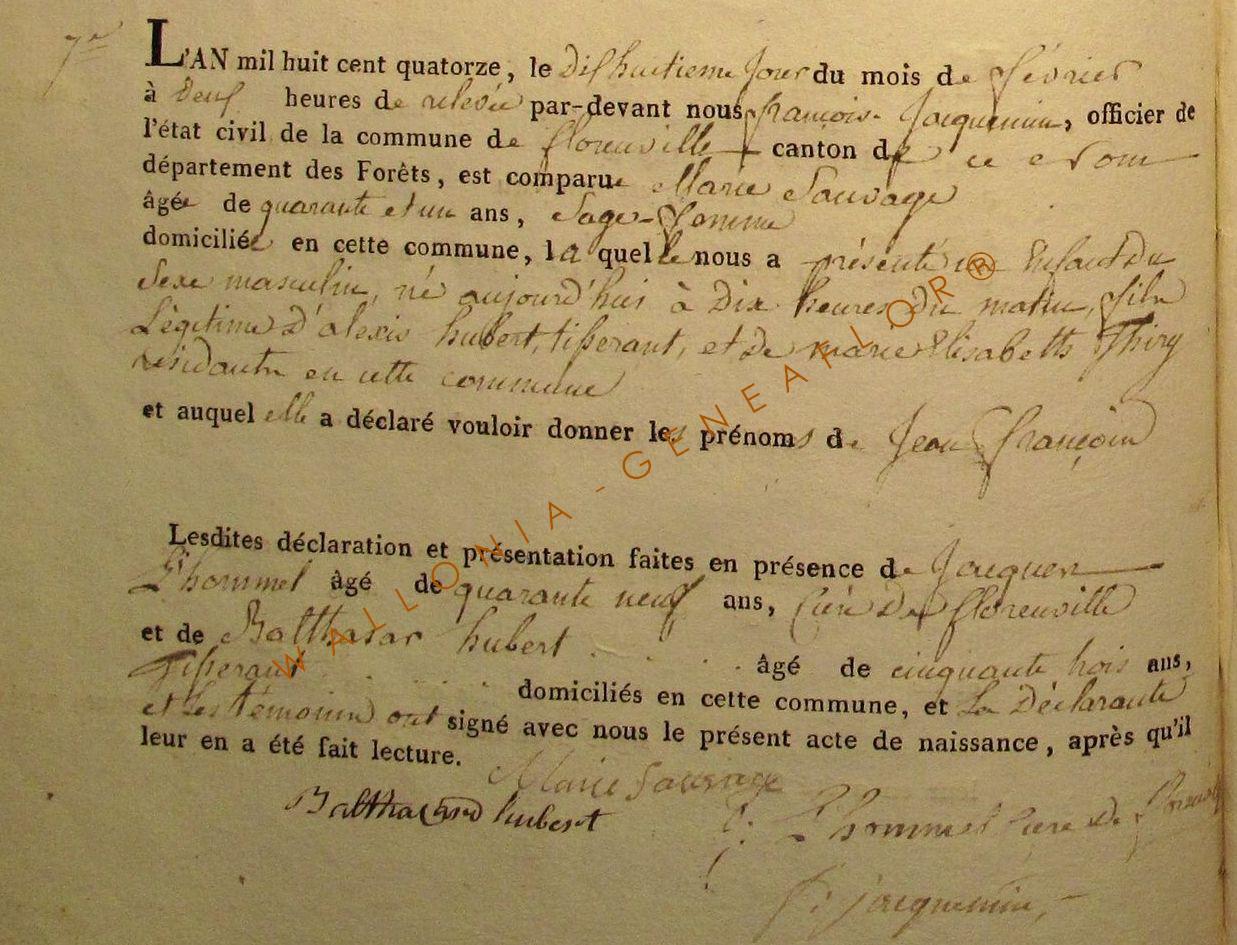 7e
L'AN mil huit cent quatorze, le dishuitieme Jour du mois de février
à deus heures de relevée par-devant nous françois Jacquemin, officier de
l'état civil de la commune de florenville canton de ce nom
département des Forêts, est comparue Marie Sauvage
âgée de quarante et un ans, Sage-femme
domiciliée en cette commune, laquelle nous a présenté un Enfant Du
Sexe masculin, né aujourd'hui à Dix heures Du matin, fils
Légitime D'alexis hubert, tisserant, et De marie Elisabeth Thiry
résidants en cette commune
et auquel elle a déclaré vouloir donner les prénoms de Jean françois
Lesdites déclaration et présentation faites en présence de Jacques
L'hommel âgé de quarante neuf ans, Curé De florenville
et de Balthasar hubert âgé de cinquante trois ans,
Tisserant domiciliés en cette commune, et La Déclarante
et Les témoins ont signé avec nous le présent acte de naissance, après qu'il
leur en a été fait lecture.
Marie Sauvage
Balthasard hubert
J: L'hommel curé De florenville
f: jacquemin
WALLONIA-GENEALOR®